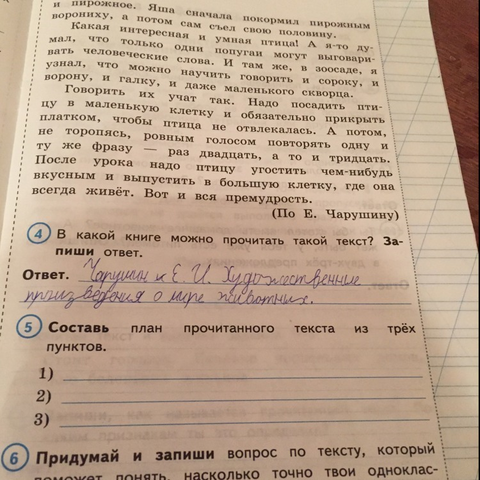 и пирожное. Яша сначала покормил пирожным
ворониху, а потом сам съел свою половину.
Какая интересная и умная птица! А я-то ду-
мал, что только одни попугаи могут выговари-
вать человеческие слова. И там же, в зоосаде, я
узнал, что можно научить говорить и сороку, и
ворону, и галку, и даже маленького скворца.
Говорить их учат так. Надо посадить пти-
цу в маленькую клетку и обязательно прикрыть
платком, чтобы птица не отвлекалась. А потом,
не торопясь, ровным голосом повторять одну и
ту же фразу — раз двадцать, а то и тридцать.
После урока надо птицу угостить чем-нибудь
вкусным и выпустить в большую клетку, где она
всегда живёт. Вот и вся премудрость.
(По Е. Чарушину)
4 В какой книге можно прочитать такой текст? За-
пиши ответ.
Ответ. Чарушин Е. И. Художественные
произведения о мире животных.
5 Составь план прочитанного текста из трёх
пунктов.
1)
2)
3)
6 Придумай и запиши вопрос по тексту, который
поможет понять, насколько точно твои одноклас-